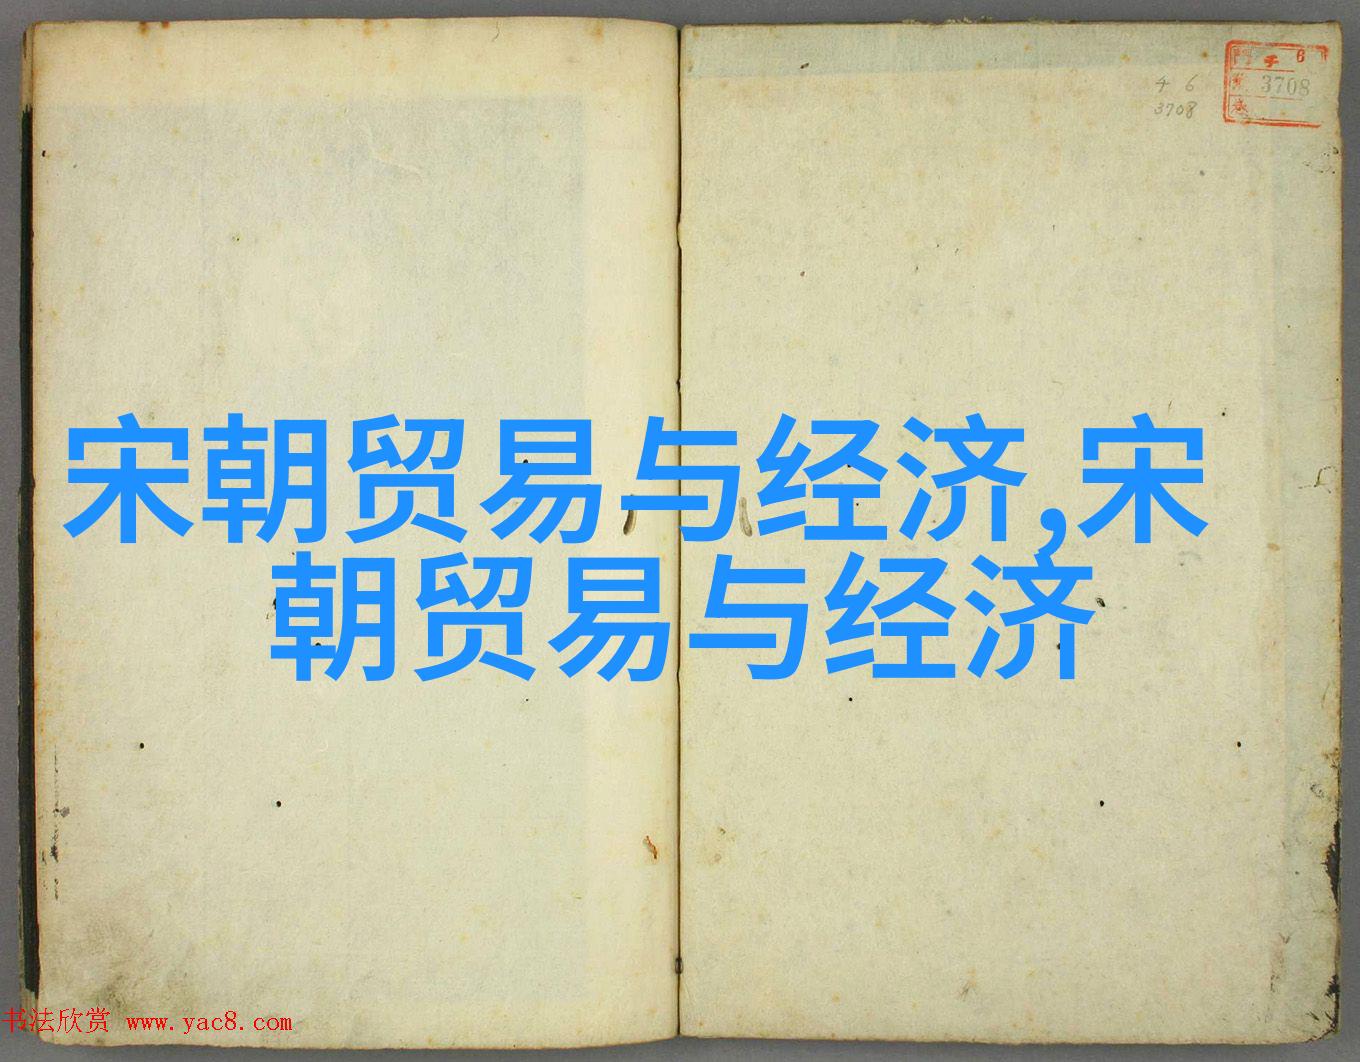 宋朝贸易与经济,宋
朝贸易与经济
4 6
3708
6
3708
书法欣赏 www.yac8.com